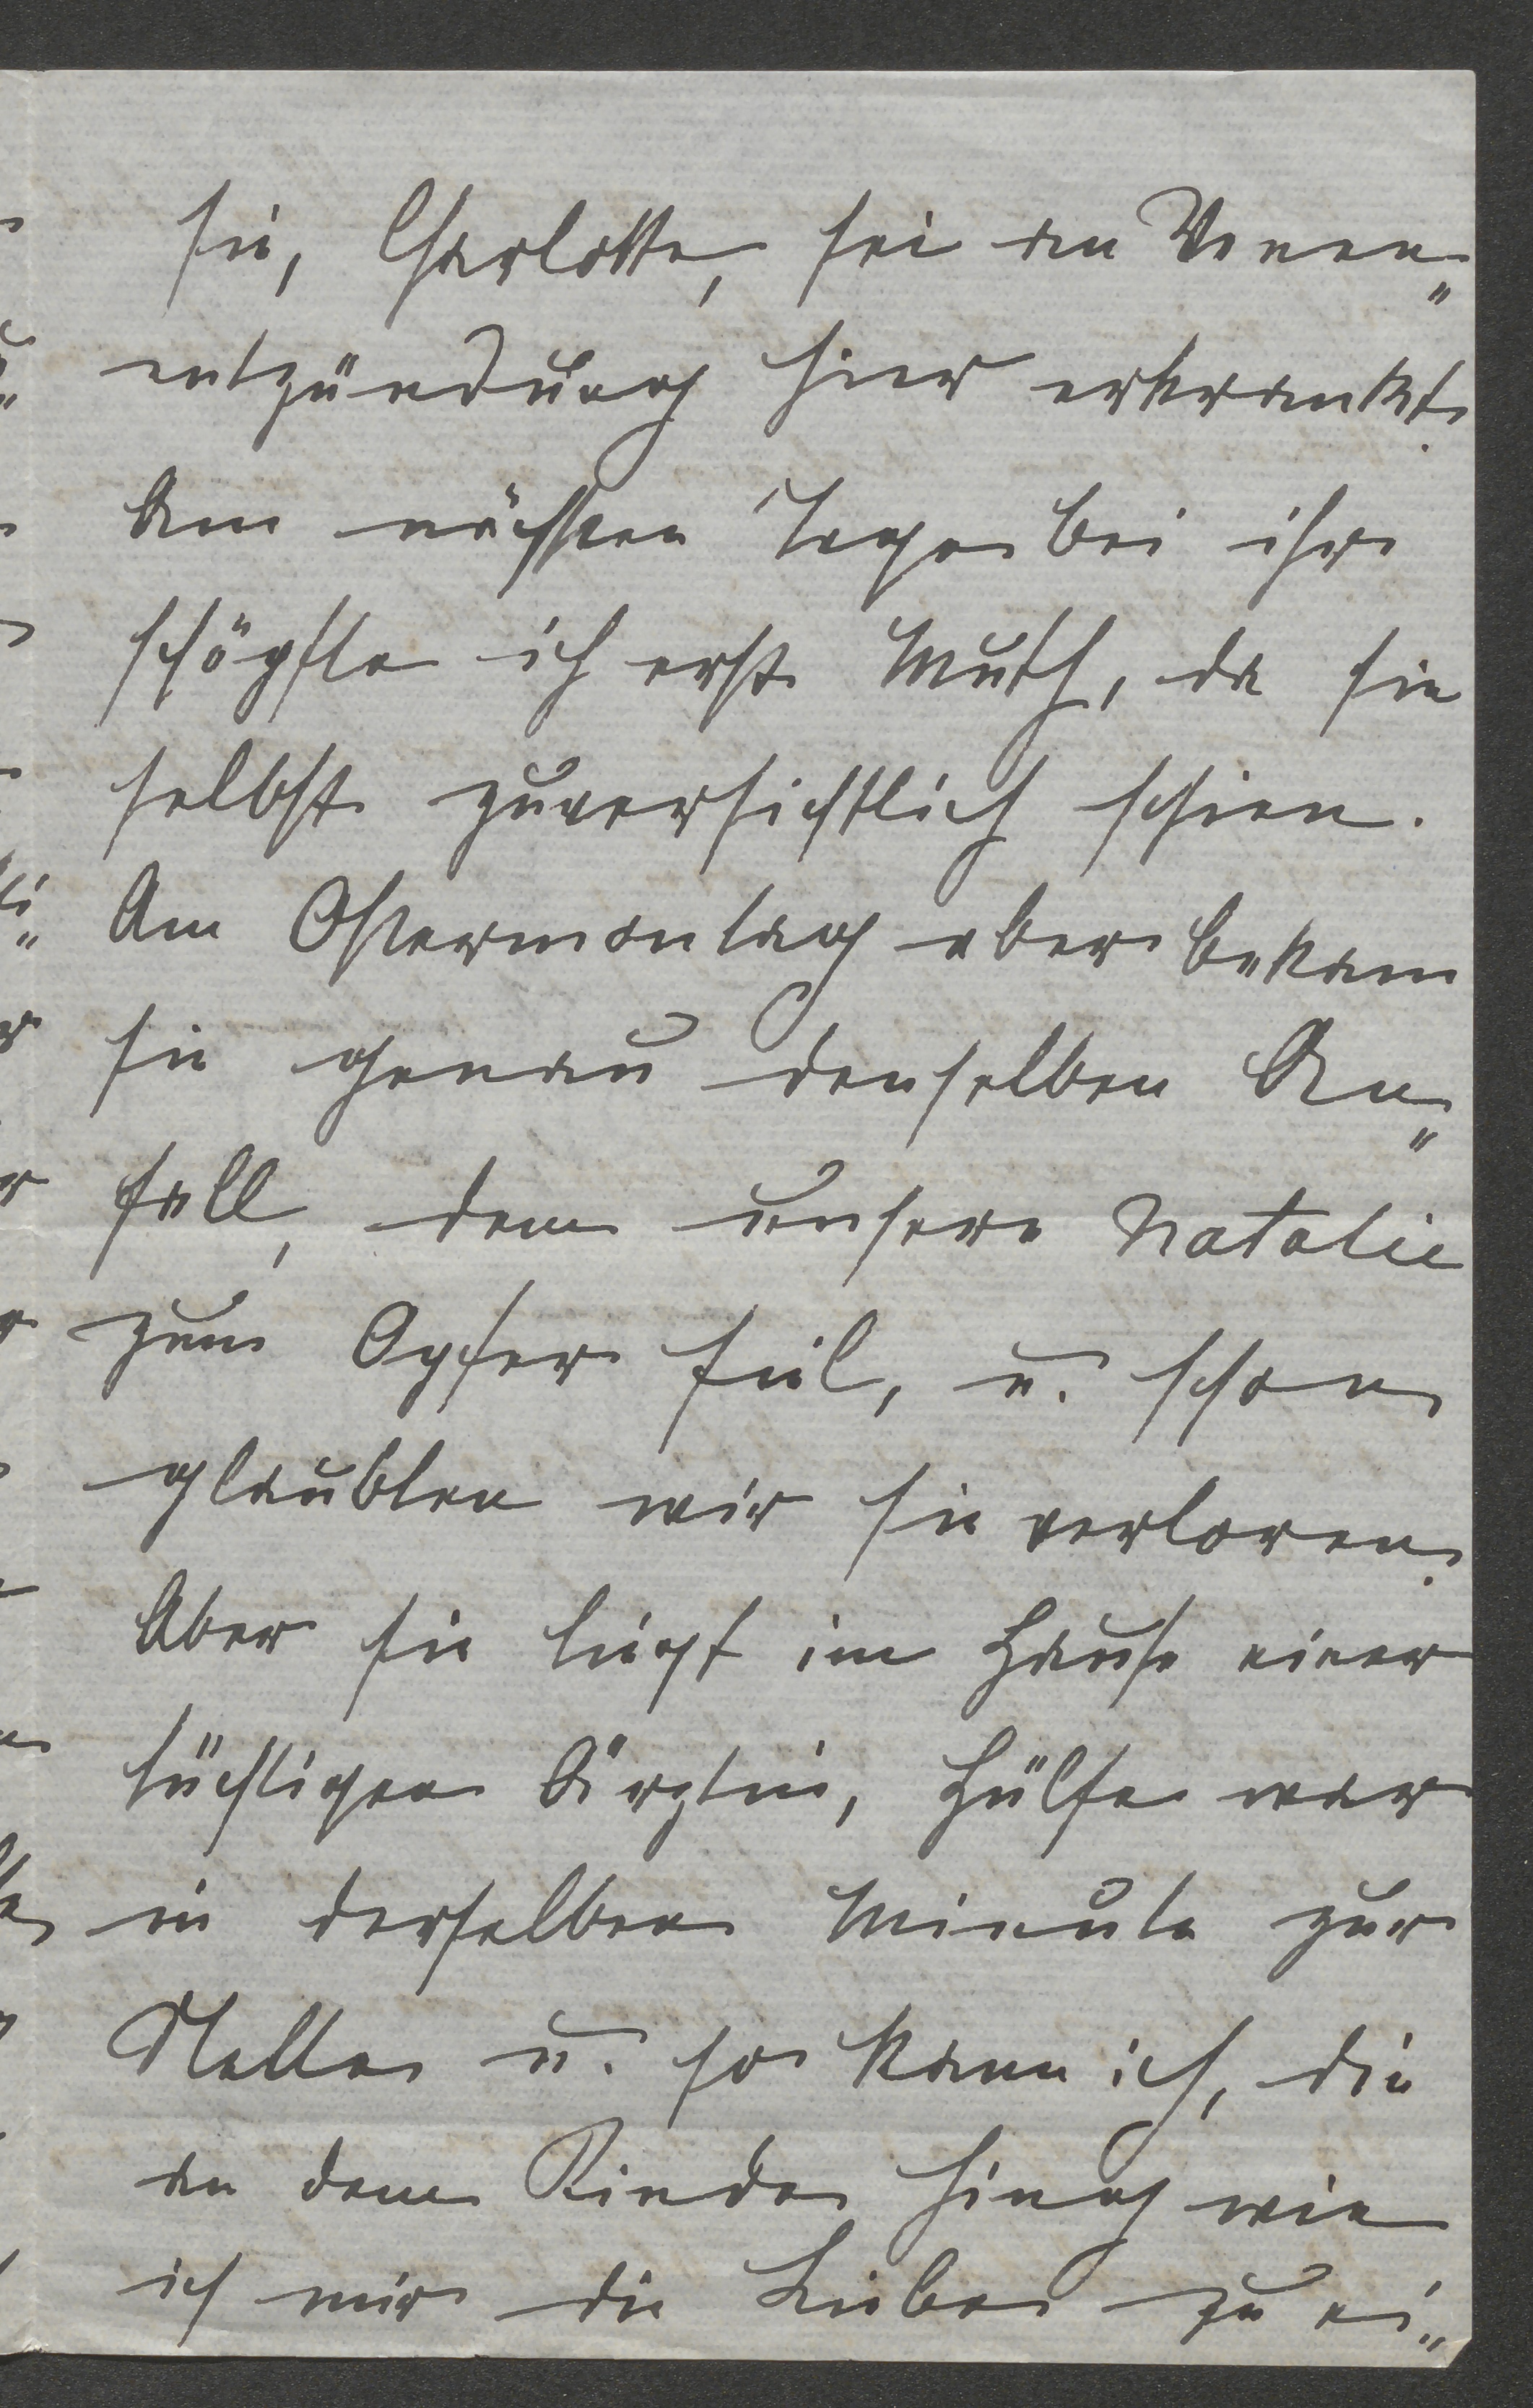 sie, Charlotte, sei an Venen„
entzündung hier erkrankt.
Am nächsten Tage bei ihr
schöpfte ich erst Muth, da sie
selbst zuversichtlich schien.
Am Ostermontag aber bekam
sie genau denselben An„
fall, dem unsere Natalie
zum Opfer fiel, u. schon
glaubten wir sie verloren.
Aber sie liegt im Hause einer
tüchtigen Ärztin, Hülfe war
in derselben Minute zur
Stelle u. so kann ich, die
an dem Kinde hing wie
ich mir die Liebe zu ei„